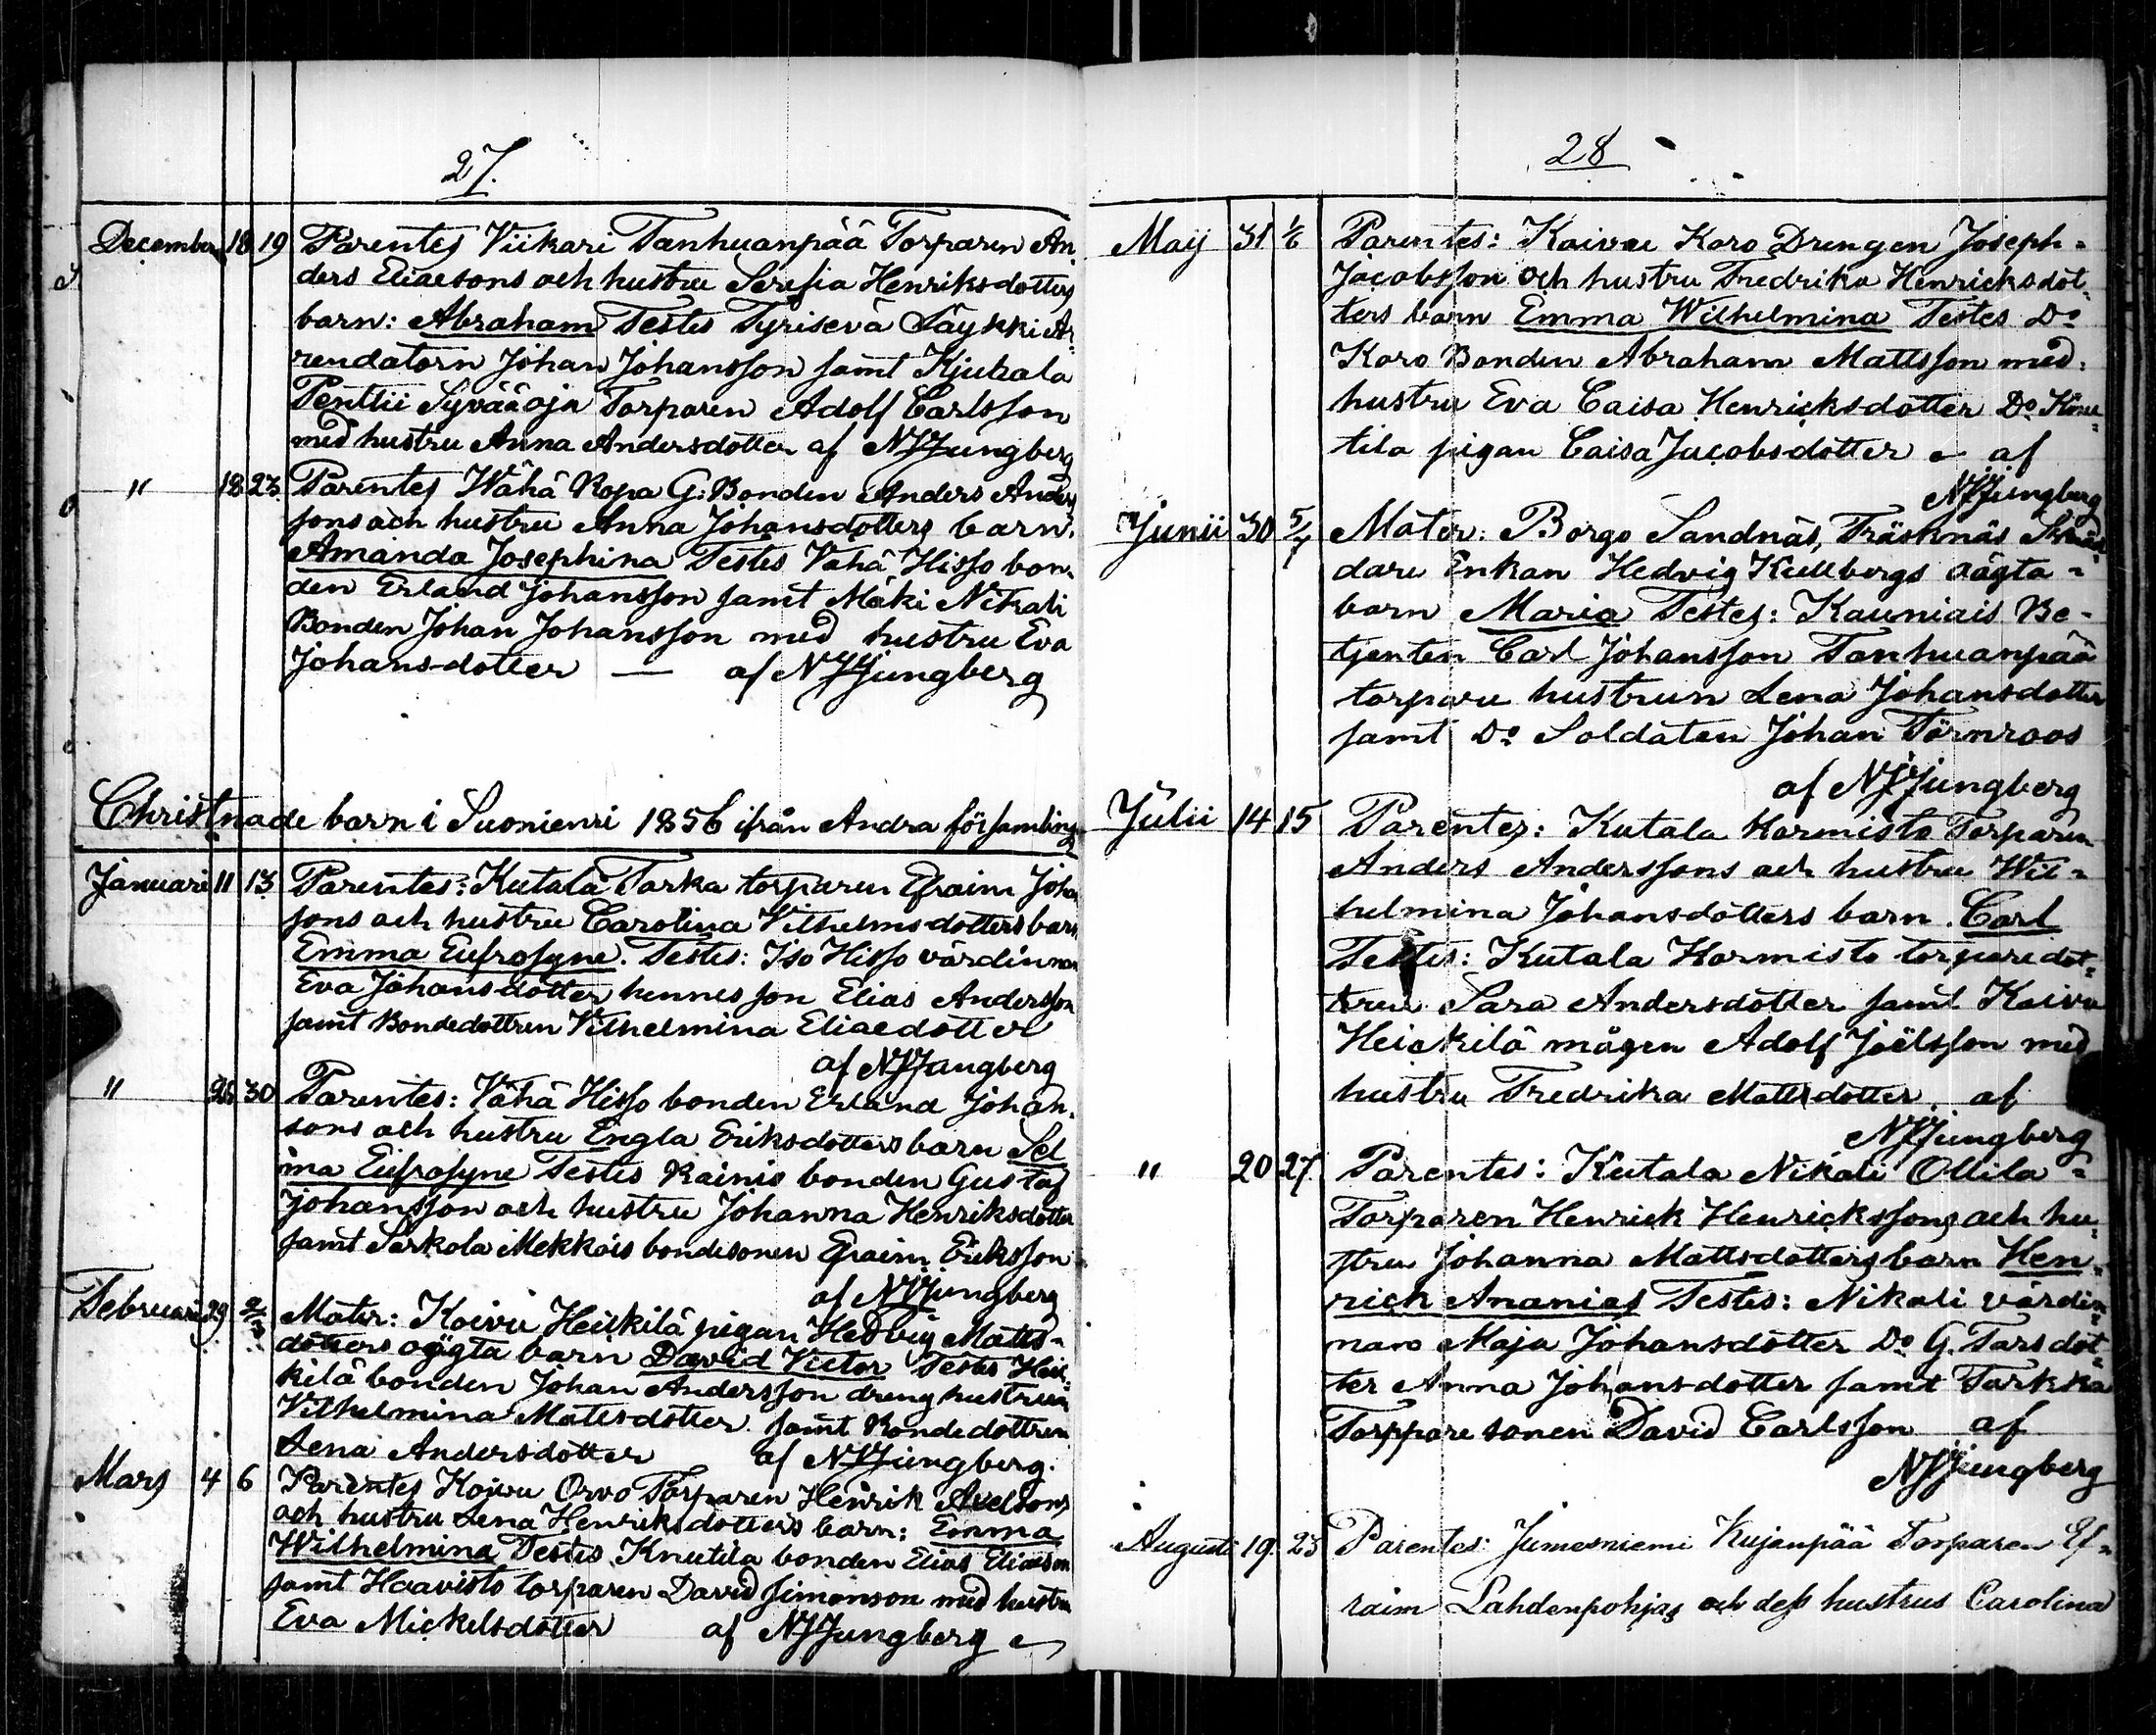 27.
December 18 19 Parentes Viikari Tanhuanpää Torparen An-
ders Eliaesons och hustru Serefia Henriksdotters
barn: Abraham Testes Tyrisevä Säykki Ar-
rendatorn Johan Johansson samt Kjukala
Penttii Syvääoja Torparen Adolf Carlsson
med hustru Anna Andersdotter af NJLjungberg
" 18 23 Parentes Wähä Ropa G: Bonden Anders Anders
sons och hustru Anna Johansdotters barn.
Amanda Josephina Testes Vähä Hisso bon-
den Erland Johansson samt Mäki Nikali
Bonden Johan Johansson med hustru Eva
Johansdotter — af NJLjungberg
Christnade barn i Suonienri 1856 ifrån Andra församling
Januari 11 13 Parentes: Kutala Tarka torparen Efraim Johan
sons och hustru Carolina Vilhelmsdotters barn
Emma Eufrosyne. Testes: Iso Hisso värdinnan
Eva Johansdotter hennes son Elias Andersson
samt Bondedottren Vilhelmina Eliaedotter
af NJLjungberg
" 30 Parentes: Vähä Hisso bonden Erland Johan-
sons och hustru Engla Eriksdotters barn Sel
ma Eufrosyne Testes Rainio bonden Gustaf
Johansson och hustru Johanna Henriksdotter
samt Sarkola Mekkois bondesonen Efraim Eriksson
af NJLjungberg
Februari 29 2/3 Mater: Koivu Heikkilä pigan Hedvig Matts-
dotters oägta barn David Victor Testes Heik-
kilä bonden Johan Andersson dreng hustrun
Vilhelmina Mattsdotter samt Bondedottren
Lena Andersdotter af NJLjungberg.
Mars 4 6 Parentes Koivu Orvo Torparen Henrik Axelsons
och hustru Lena Henriksdotters barn: Emma
Wilhelmina Testes Knutila bonden Elias Eliaeson
samt Haavisto torparen David Simonson med hustru
Eva Mickelsdotter af NJLjungberg
28
Maij 31 1/6 Parentes: Koivu Karo Drengen Joseph-
Jacobsson och hustru Fredrika Henricksdot-
ters barn Emma Wilhelmina Testes Do
Karo Bonden Abraham Mattsson med
hustru Eva Caisa Henricksdotter Do Knu-
tila pigan Caisa Jacobsdotter af
NJLjungberg
Junii 30 5/7 Mater: Borgo Sandnäs, Träsknäs
dare Enkan Hedvig Kullbergs oägta-
barn Maria Testes: Kauniais Be-
tjenten Carl Johansson Tanhuanpää
torpare hustrun Lena Johansdotter
samt Do Soldaten Johan Törnroos
af NJLjungberg
Julii 14 15 Parentes: Kutala Kormisto Torparen
Anders Anderssons och hustru Wil-
helmina Johansdotters barn. Carl
Testes: Kutala Kormisto torparedot-
tren Sara Andersdotter samt Koivu
Heickilä mågen Adolf Joëlsson med
hustru Fredrika Mattsdotter. af
NJLjungberg
" 20 27 Parentes: Kutala Nikali Ollila-
Torparen Henrick Henrickssons och hu-
stru Johanna Mattsdotters barn Hen-
rich Ananias Testes: Nikali värdin-
nan Maja Johansdotter Do G. Fars dot-
ter Anna Johansdotter samt Tarkka
Torpparesonen David Carlsson af
NJLjungberg
Augusti 19. 23 Parentes: Jumesniemi Kujanpää Torparen Ef-
raim Lahdenpohjas och dess hustrus Carolina